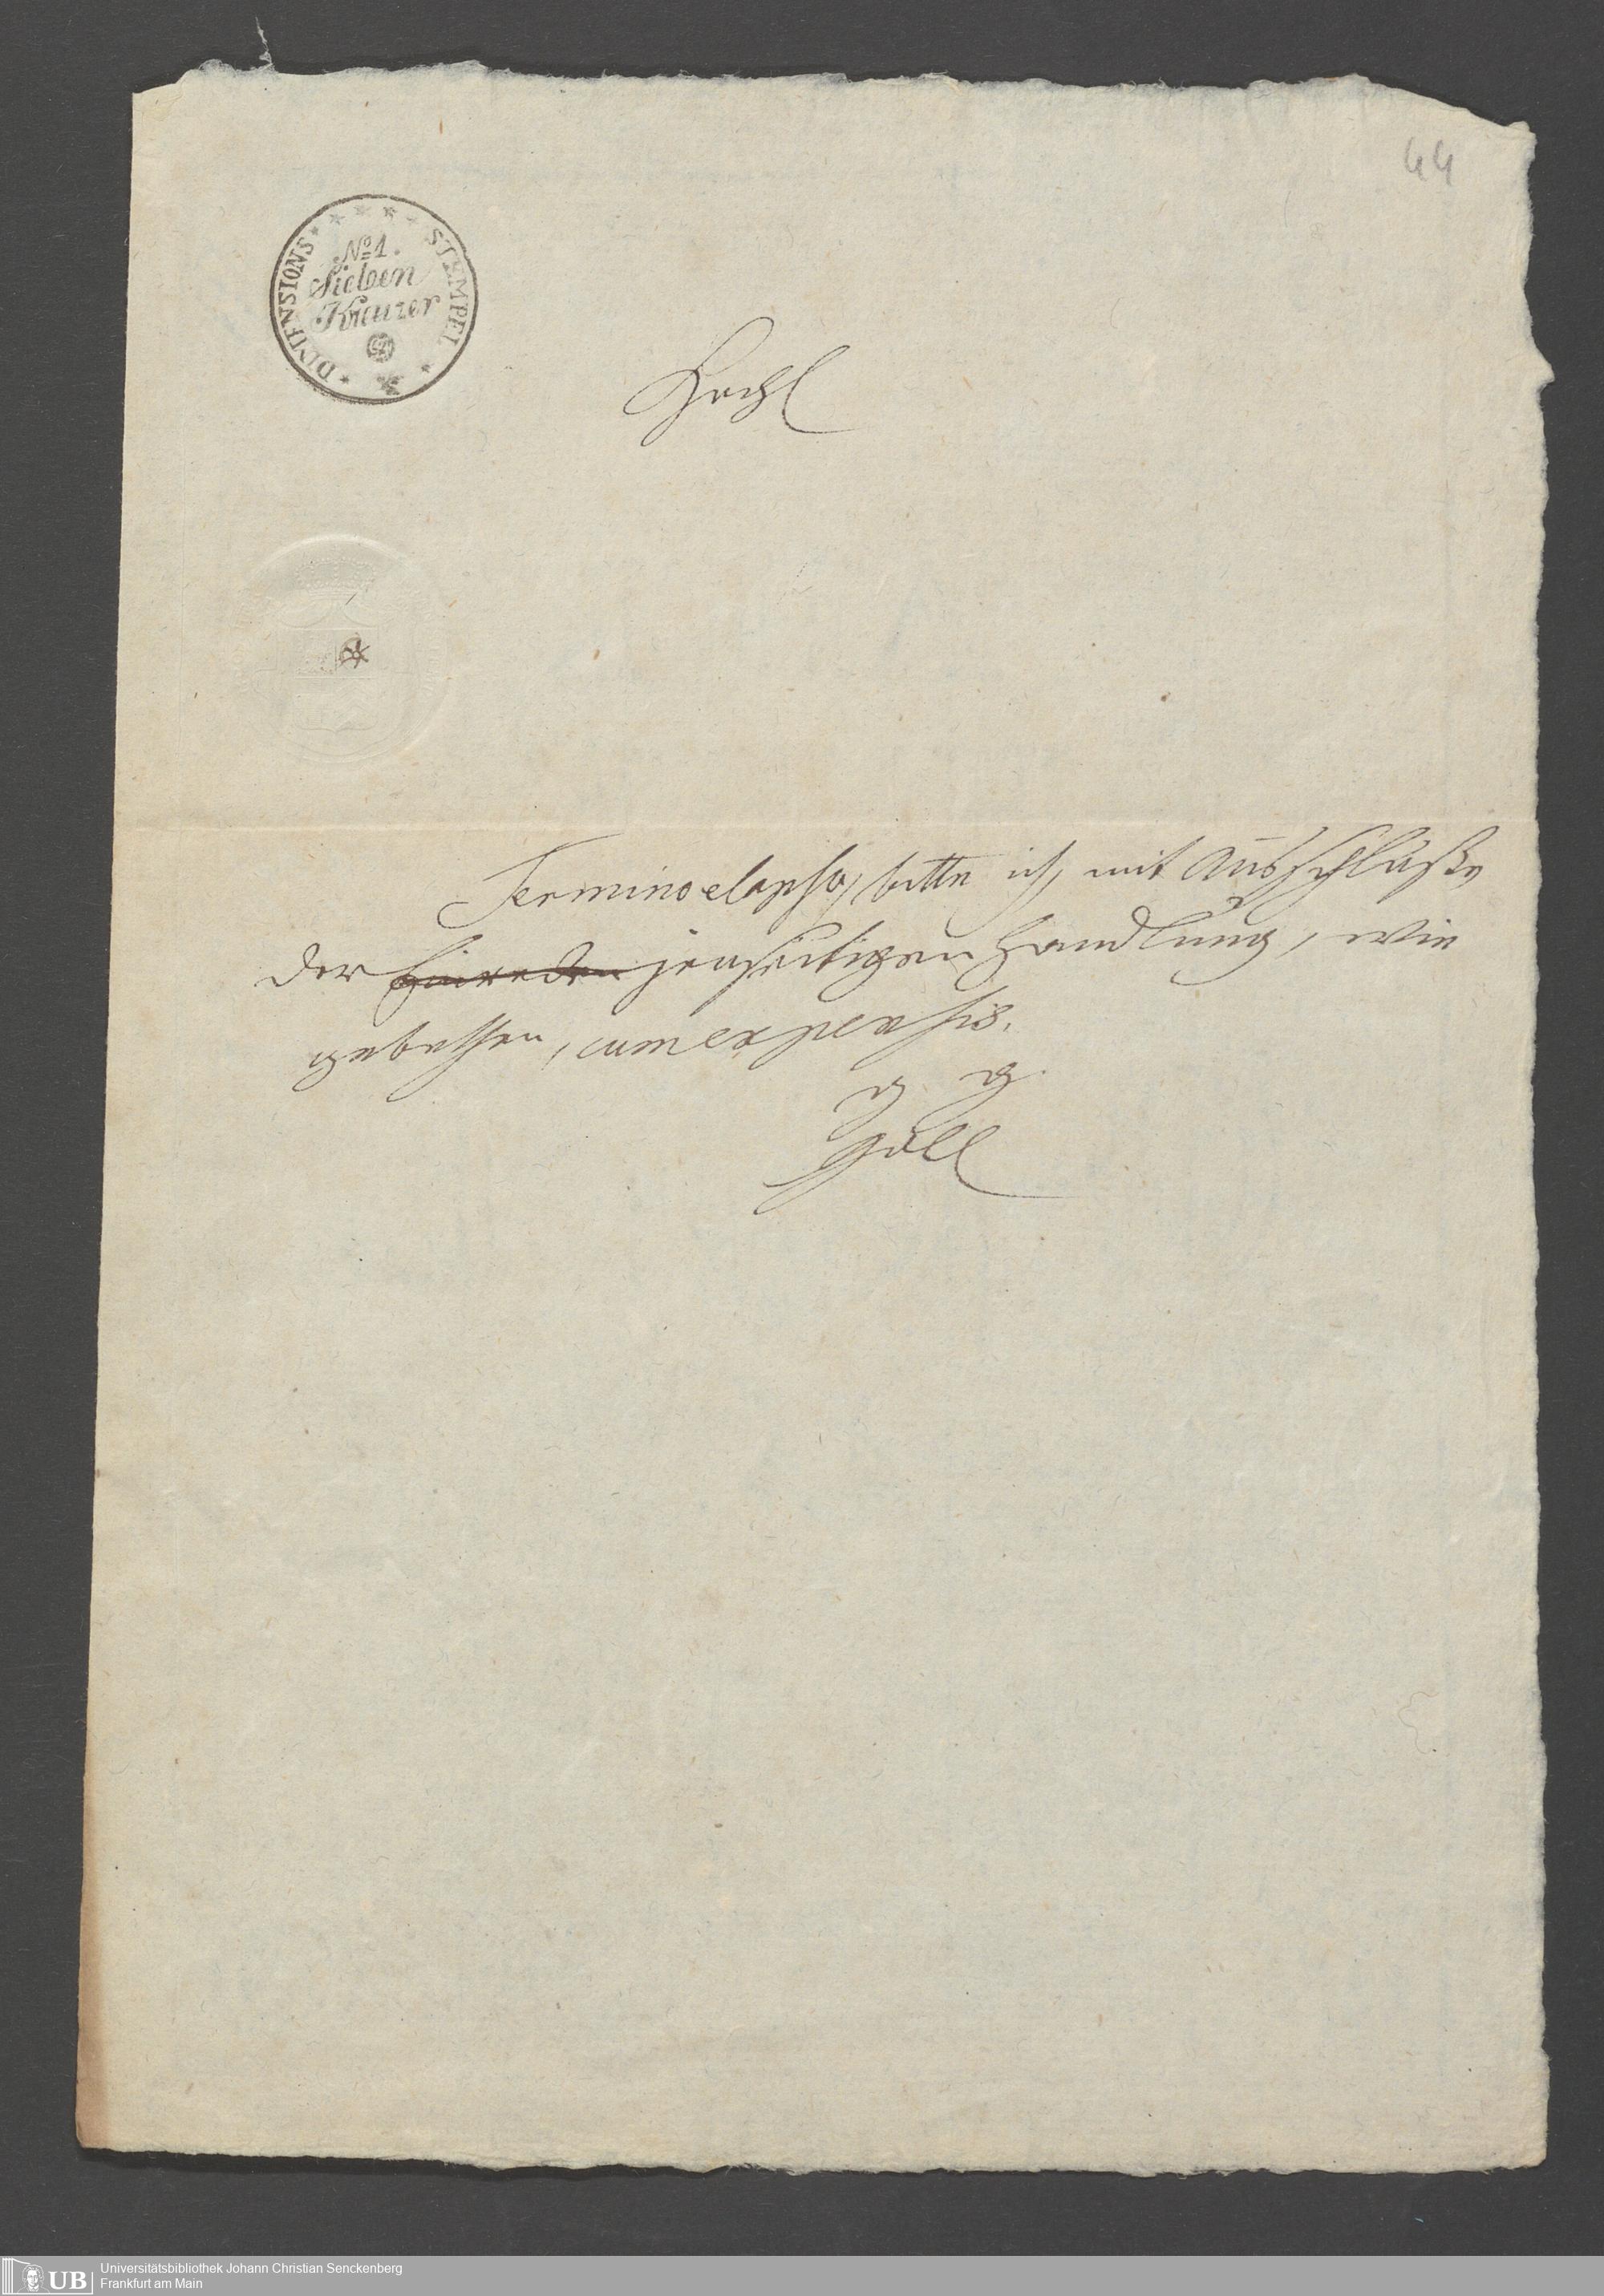 44
DIMENSIONS STEMPEL
№ 1.
Sieben
Kreuzer
Hochl
Termino elapso, bitte ich, mit Ausschluße
der Einreden jenseitigen Handlung, wie
gebethen, cum expensis.
Goll
UB
Universitätsbibliothek Johann Christian Senckenberg
Frankfurt am Main